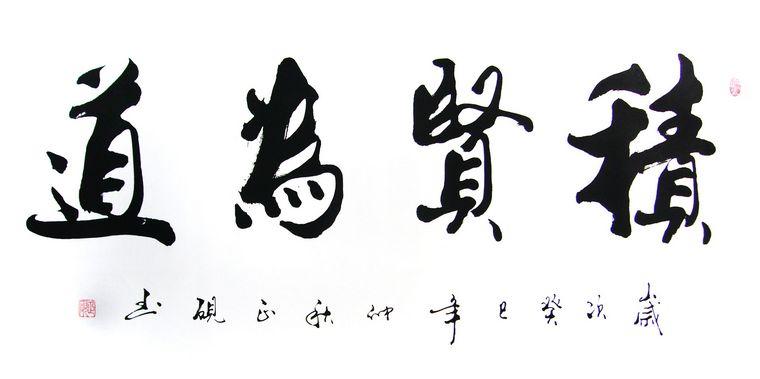 積賢為道
歲次癸巳年仲秋正硯书